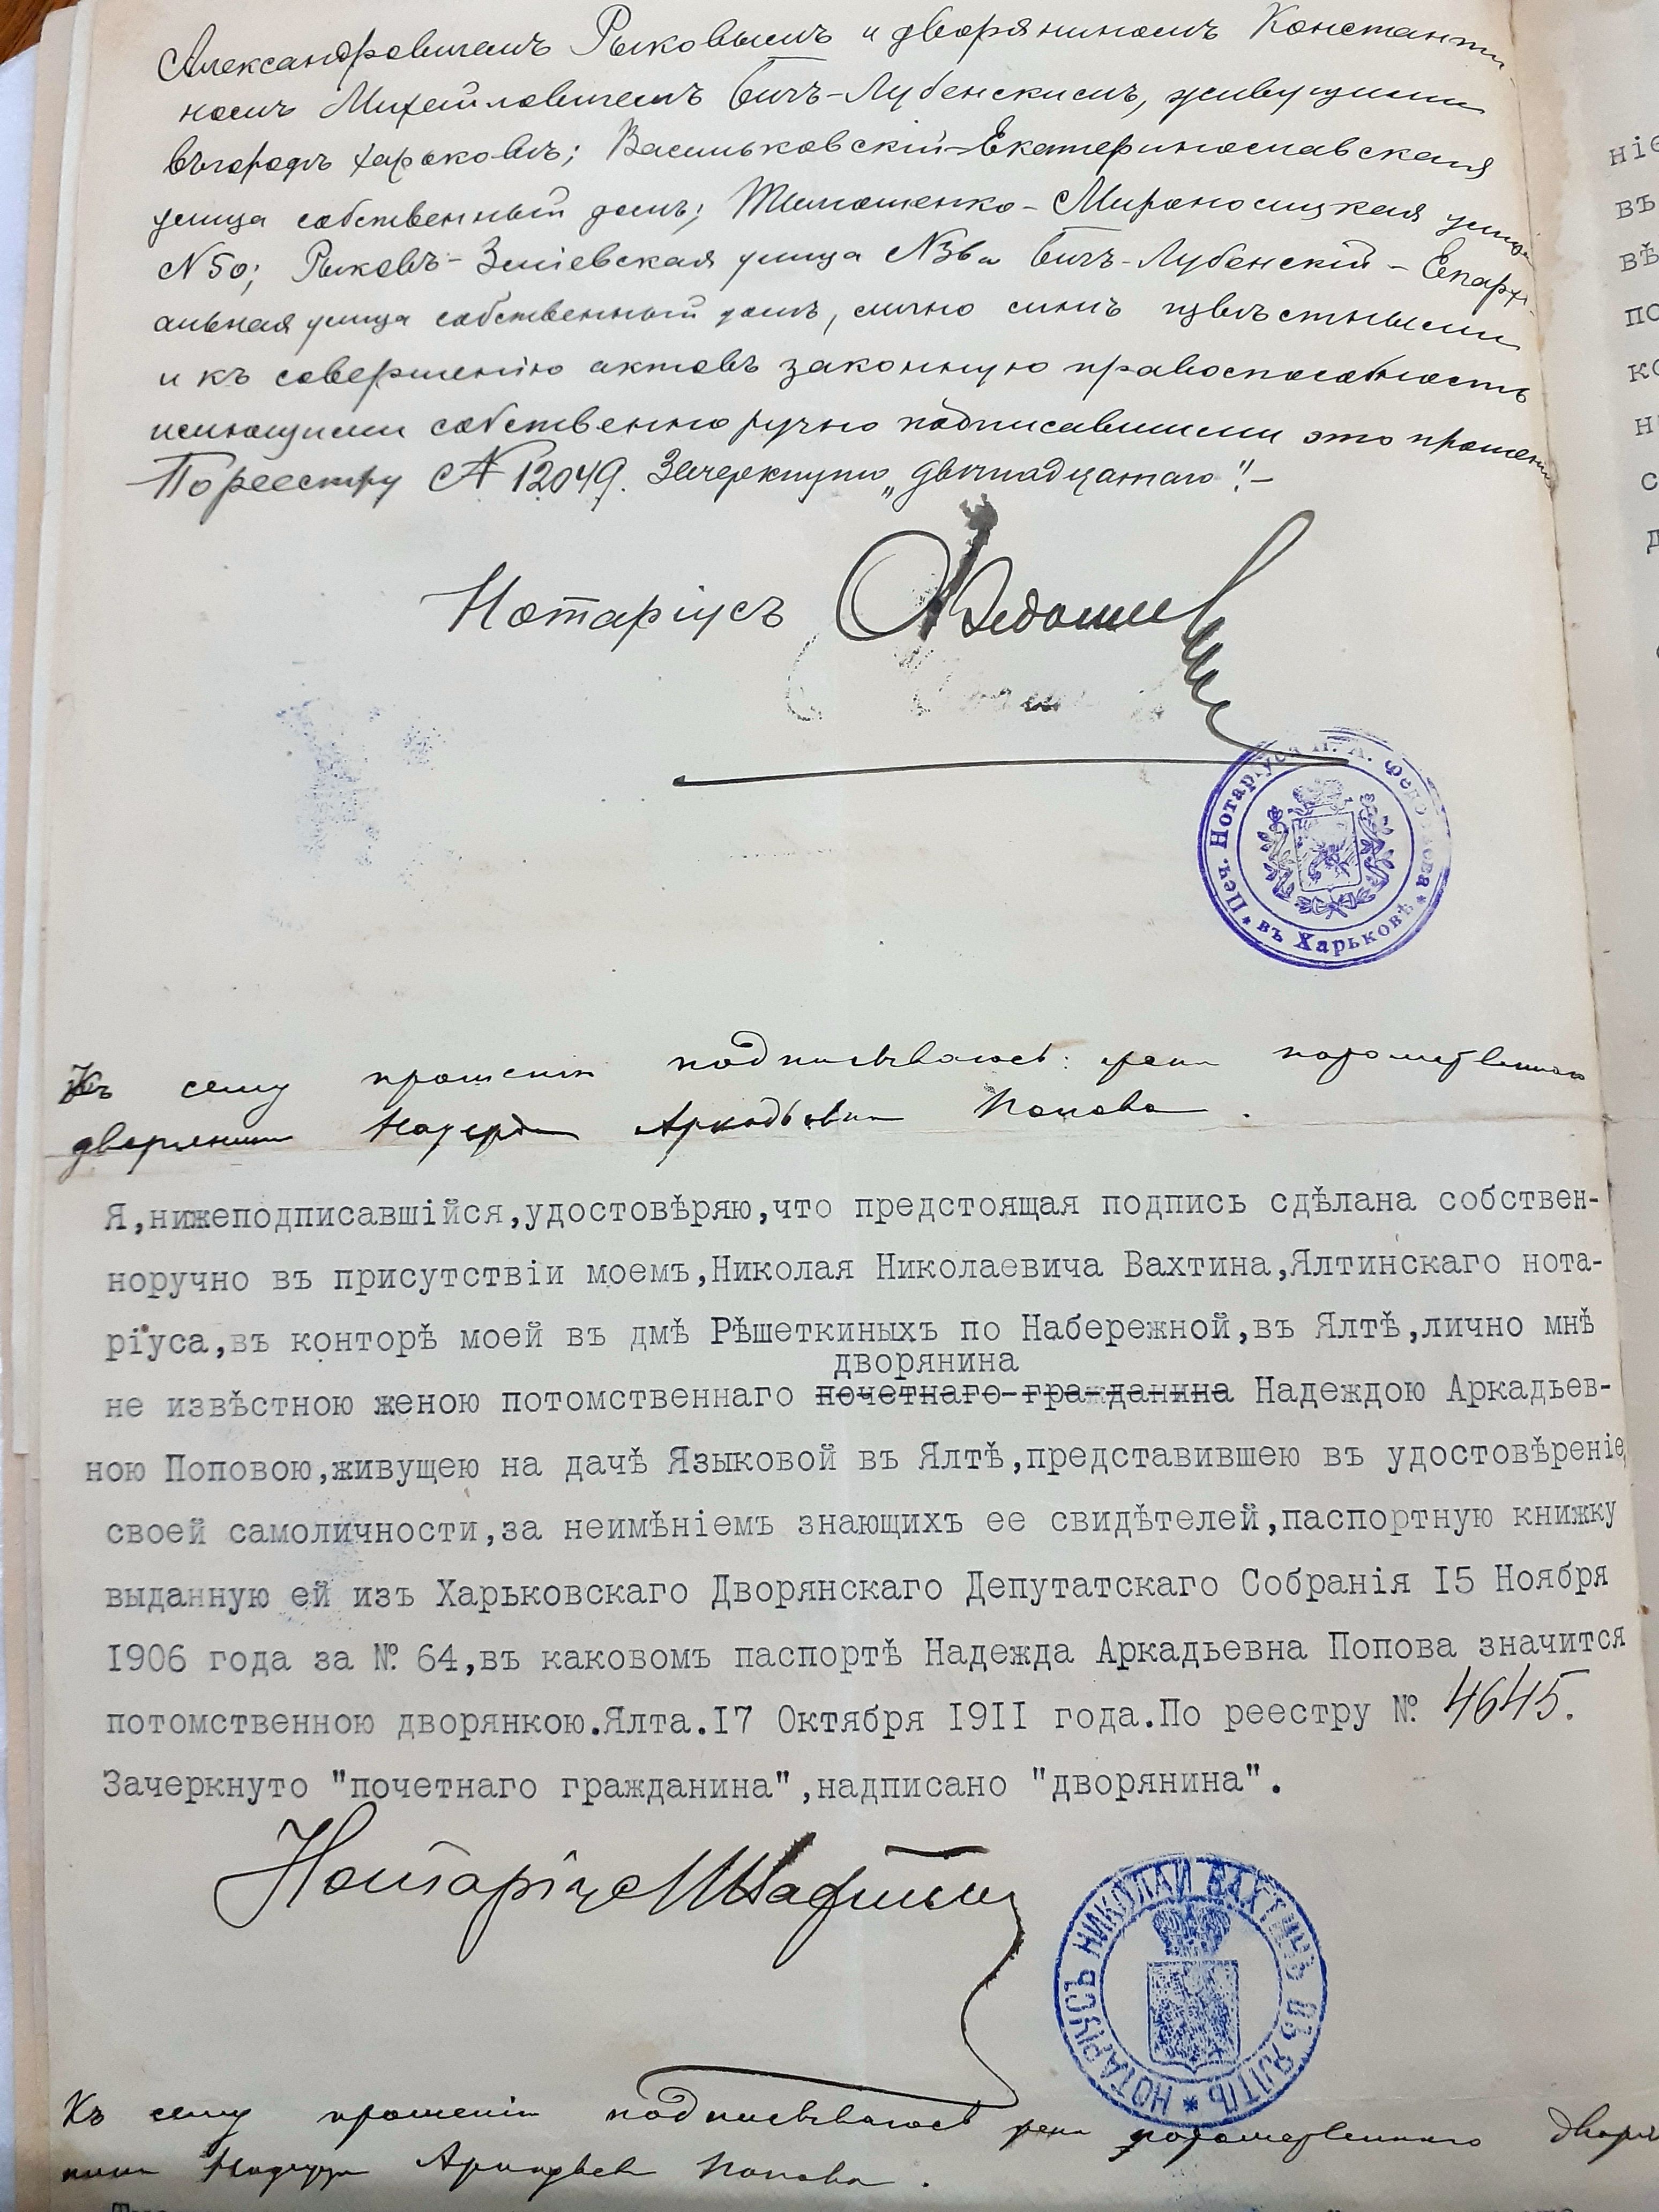 Александровичемъ Рыковымъ и дворяниномъ Константи-
номъ Михайловичемъ Бичъ-Лубенскимъ, живущими
въ городѣ Харьковѣ; Васильковскій-Екатеринославская
улица собственный домъ; Тимошенко-Мироносицкая улица
№ 50; Рыковъ-Змiевская улица № Бичъ-Лубенскій-Епархi-
альная улица собственный домъ, лично мнѣ извѣстными
и къ совершенію актовъ законную правоспособность
имеющими собственноручно подписавшими это прошенiе
По реестру № 12049. Зачеркнуто „двѣнадцатаго“.-
Нотаріусъ
Печ. Нотаріуса * въ Харьковѣ *
Къ сему прошенію подписываюсь: жена потомственнаго
дворянина Надежда Аркадьевна Попова.
Я,нижеподписавшійся,удостовѣряю,что предстоящая подпись сдѣлана собствен-
норучно въ присутствіи моемъ,Николая Николаевича Вахтина,Ялтинскаго нота-
ріуса,въ конторѣ моей въ дмѣ Рѣшеткиныхъ по Набережной,въ Ялтѣ,лично мнѣ
дворянина
не извѣстною женою потомственнаго почетнаго-гражданина Надеждою Аркадьев-
ною Поповою,живущею на дачѣ Языковой въ Ялтѣ,представившею въ удостовѣреніе
своей самоличности,за неимѣніемъ знающихъ ее свидѣтелей,паспортную книжку
выданную ей изъ Харьковскаго Дворянскаго Депутатскаго Собранія 15 Ноября
1906 года за № 64,въ каковомъ паспортѣ Надежда Аркадьевна Попова значится
потомственною дворянкою.Ялта.17 Октября 1911 года.По реестру № 4645.
Зачеркнуто "почетнаго гражданина",надписано "дворянина".
Нотаріусъ Н Вахтинъ
НОТАРІУСЪ НИКОЛАЙ ВАХТИНЪ ВЪ ЯЛТѢ *
Къ сему прошенію подписываюсь жена потомственнаго дворя-
нина Надежда Аркадьев Попова.